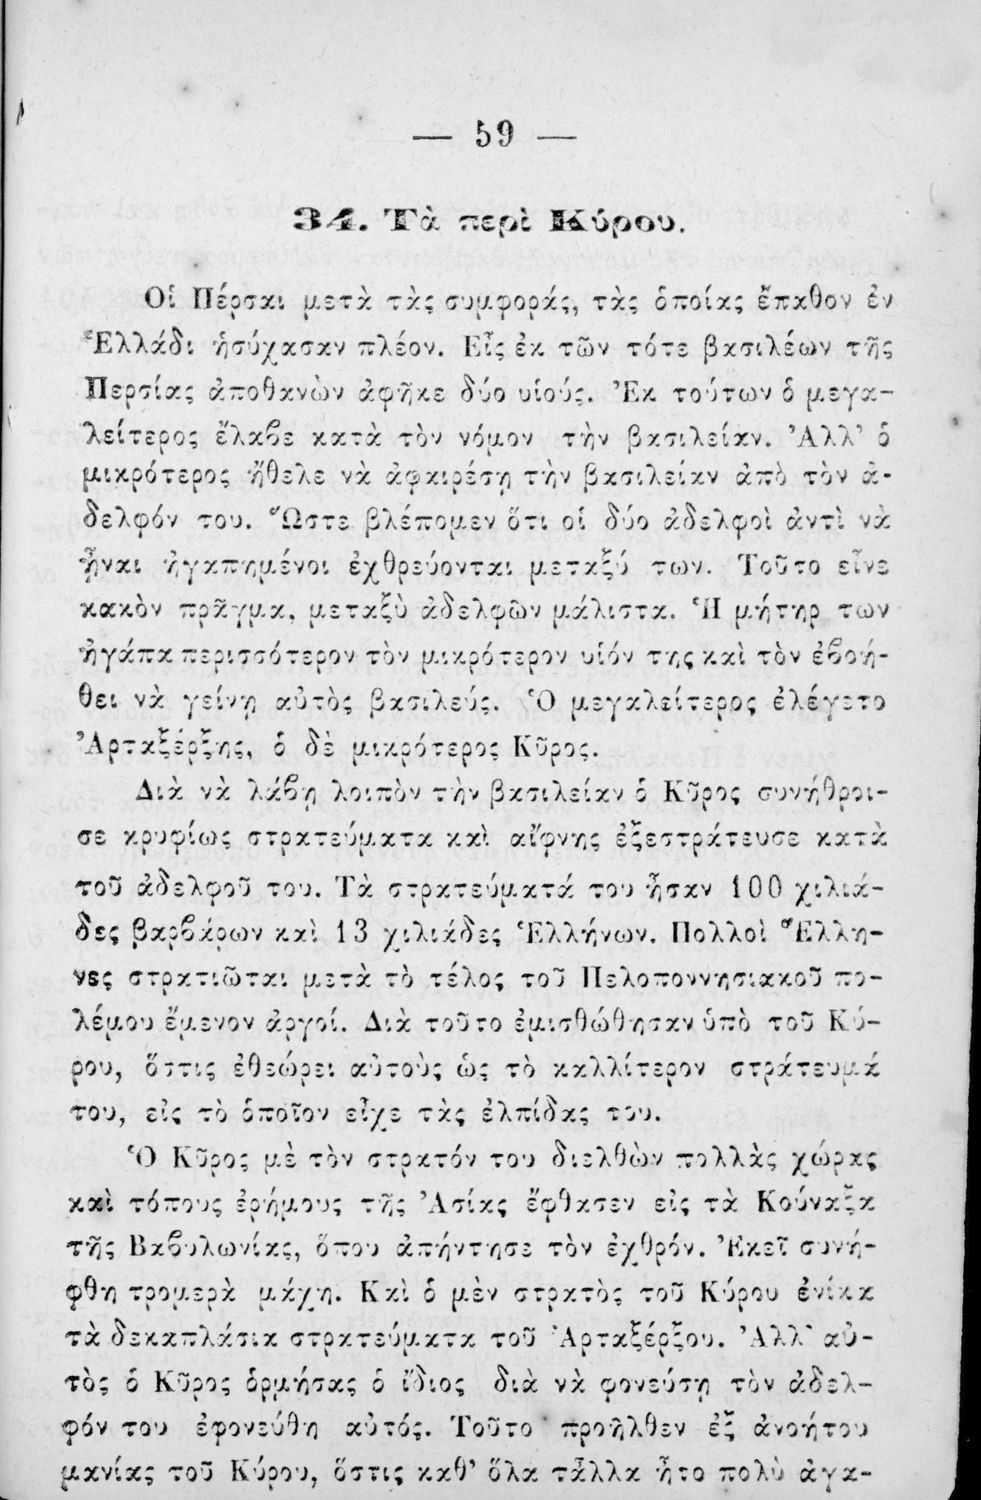 — 59 —
34. Τὰ περὶ Κύρου.
Οἱ Πέρσαι μετὰ τὰς συμφοράς, τὰς ὁποίας ἔπαθον ἐν
Ἑλλάδι ἡσύχασαν πλέον. Εἷς ἐκ τῶν τότε βασιλέων τῆς
Περσίας ἀποθανὼν ἀφῆκε δύο υἱούς. Ἐκ τούτων ὁ μεγα-
λείτερος ἔλαβε κατὰ τὸν νόμον τὴν βασιλείαν. Ἀλλ' ὁ
μικρότερος ἤθελε νὰ ἀφαιρέσῃ τὴν βασιλείαν ἀπὸ τὸν ἀ-
δελφόν του. Ὥστε βλέπομεν ὅτι οἱ δύο ἀδελφοὶ ἀντὶ νὰ
ἦναι ἠγαπημένοι ἐχθρεύονται μεταξύ των. Τοῦτο εἶνε
κακὸν πρᾶγμα, μεταξὺ ἀδελφῶν μάλιστα. Ἡ μήτηρ των
ἠγάπα περισσότερον τὸν μικρότερον υἱόν της καὶ τὸν ἐβοή-
θει νὰ γείνῃ αὐτὸς βασιλεύς. Ὁ μεγαλείτερος ἐλέγετο
Ἀρταξέρξης, ὁ δὲ μικρότερος Κῦρος.
Διὰ νὰ λάβῃ λοιπὸν τὴν βασιλείαν ὁ Κῦρος συνήθροι-
σε κρυφίως στρατεύματα καὶ αἴφνης ἐξεστράτευσε κατὰ
τοῦ ἀδελφοῦ του. Τὰ στρατεύματά του ἦσαν 100 χιλιά-
δες βαρβάρων καὶ 13 χιλιάδες Ἑλλήνων. Πολλοὶ Ἕλλη-
νες στρατιῶται μετὰ τὸ τέλος τοῦ Πελοποννησιακοῦ πο-
λέμου ἔμενον ἀργοί. Διὰ τοῦτο ἐμισθώθησαν ὑπὸ τοῦ Κύ-
ρου, ὅστις ἐθεώρει αὐτοὺς ὡς τὸ καλλίτερον στράτευμά
του, εἰς τὸ ὁποῖον εἶχε τὰς ἐλπίδας του.
Ὁ Κῦρος μὲ τὸν στρατόν του διελθὼν πολλὰς χώρας
καὶ τόπους ἐρήμους τῆς Ἀσίας ἔφθασεν εἰς τὰ Κούναξα
τῆς Βαβυλωνίας, ὅπου ἀπήντησε τὸν ἐχθρόν. Ἐκεῖ συνή-
φθη τρομερὰ μάχη. Καὶ ὁ μὲν στρατὸς τοῦ Κύρου ἐνίκα
τὰ δεκαπλάσια στρατεύματα τοῦ Ἀρταξέρξου. Ἀλλ' αὐ-
τὸς ὁ Κῦρος ὁρμήσας ὁ ἴδιος διὰ νὰ φονεύσῃ τὸν ἀδελ-
φόν του ἐφονεύθη αὐτός. Τοῦτο προῆλθεν ἐξ ἀνοήτου
μανίας τοῦ Κύρου, ὅστις καθ' ὅλα τἆλλα ἦτο πολὺ ἀγα-